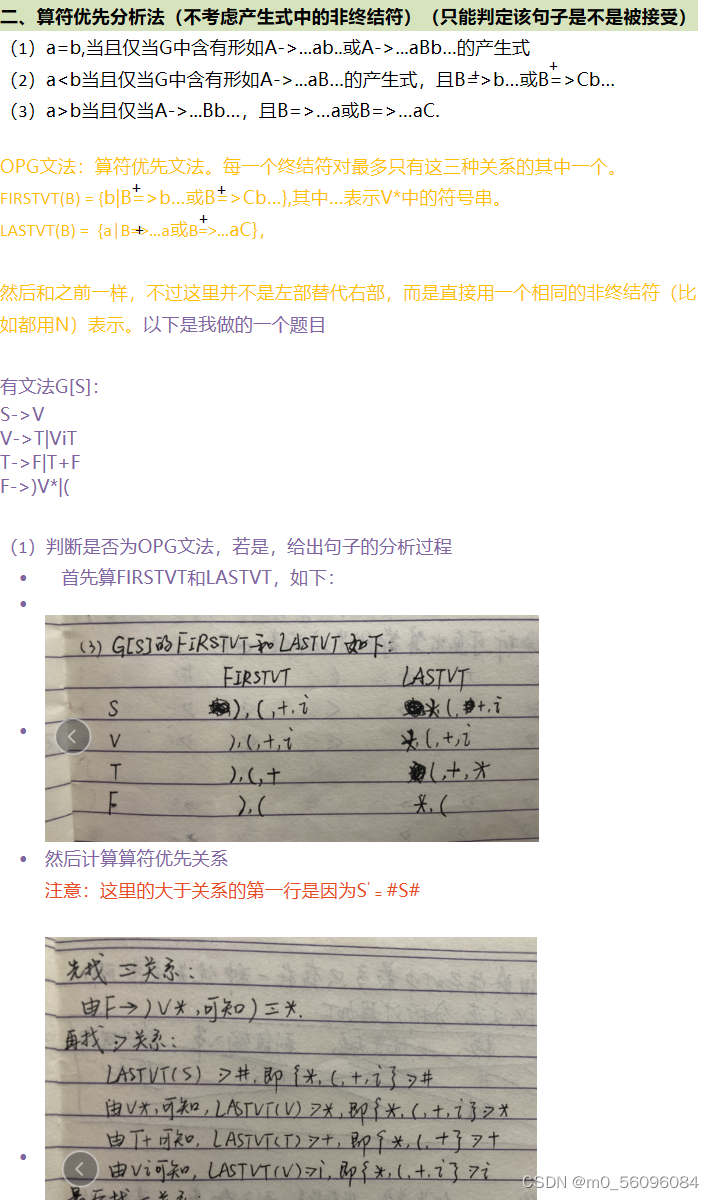 二、算符优先分析法（不考虑产生式中的非终结符）（只能判定该句子是不是被接受）
（1）a=b,当且仅当G中含有形如A->...ab..或A->...aBb...的产生式
（2）a<b当且仅当G中含有形如A->...aB...的产生式，且B=+>b...或B=+>Cb...
（3）a>b当且仅当A->...Bb...，且B=>...a或B=>...aC.
OPG文法：算符优先文法。每一个终结符对最多只有这三种关系的其中一个。
FIRSTVT(B) = {b|B=+>b...或B=+>Cb...},其中...表示V*中的符号串。
LASTVT(B) = {a|B=+>...a或B=+>...aC}，
然后和之前一样，不过这里并不是左部替代右部，而是直接用一个相同的非终结符（比
如都用N）表示。以下是我做的一个题目
有文法G[S]：
S->V
V->T|ViT
T->F|T+F
F->)V*|(
（1）判断是否为OPG文法，若是，给出句子的分析过程
• 首先算FIRSTVT和LASTVT，如下：
(3) G[S]的FIRSTVT和LASTVT如下：
FIRSTVT LASTVT
S ),(,+,i *,(,+,i
V ),(,+,i *,(,+,i
T ),(,+ (,+,*
F ),( *,(
• 然后计算算符优先关系
注意：这里的大于关系的第一行是因为S'=#S#
先找=关系：
由F→)V*,可知)=*.
再找>关系：
LASTVT(S)>#,即{*,(,+,i}>#
由V*,可知,LASTVT(V)>*,即{*,(,+,i}>*
由T+可知,LASTVT(T)>+,即{*,(,+}>+
由Vi可知,LASTVT(V)>i,即{*,(,+,i}>i
CSDN @m0_56096084